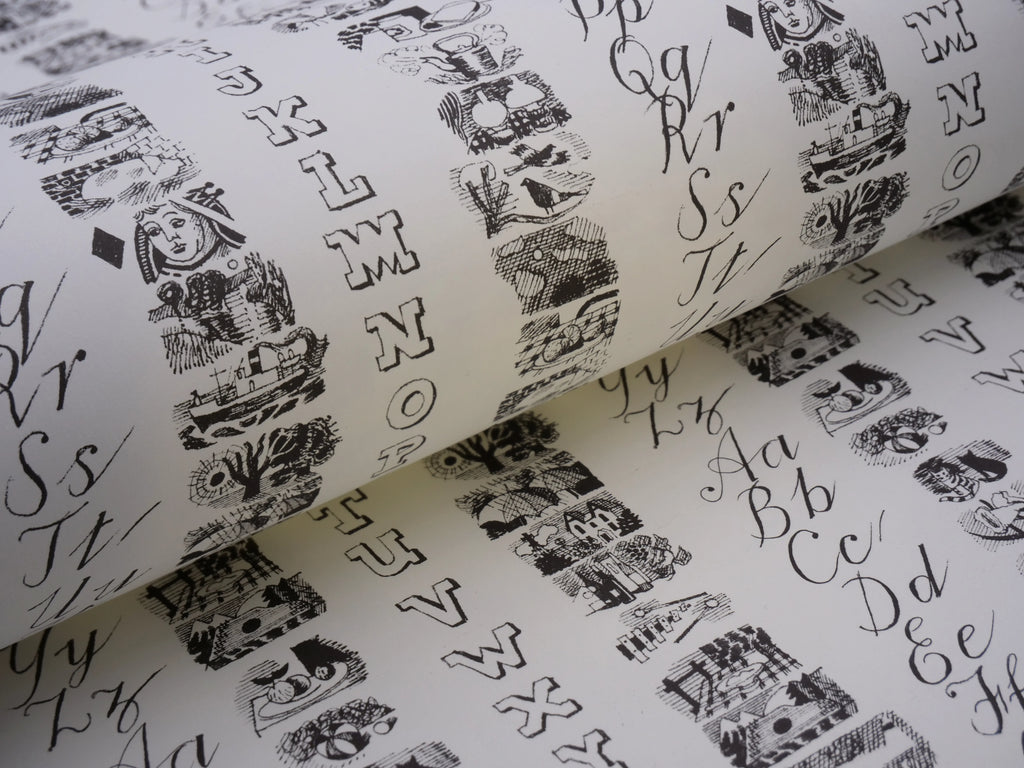 J
K
L
M
N
O
P
q
Rr
Ss
Tt
Uu
Pp
Qq
Rr
Ss
Tt
M
N
O
P
T
U
V
W
X
Y
Yy
Zz
Aa
Yy
Zz
Aa
Bb
Cc
Dd
Ee
Ff
U
V
W